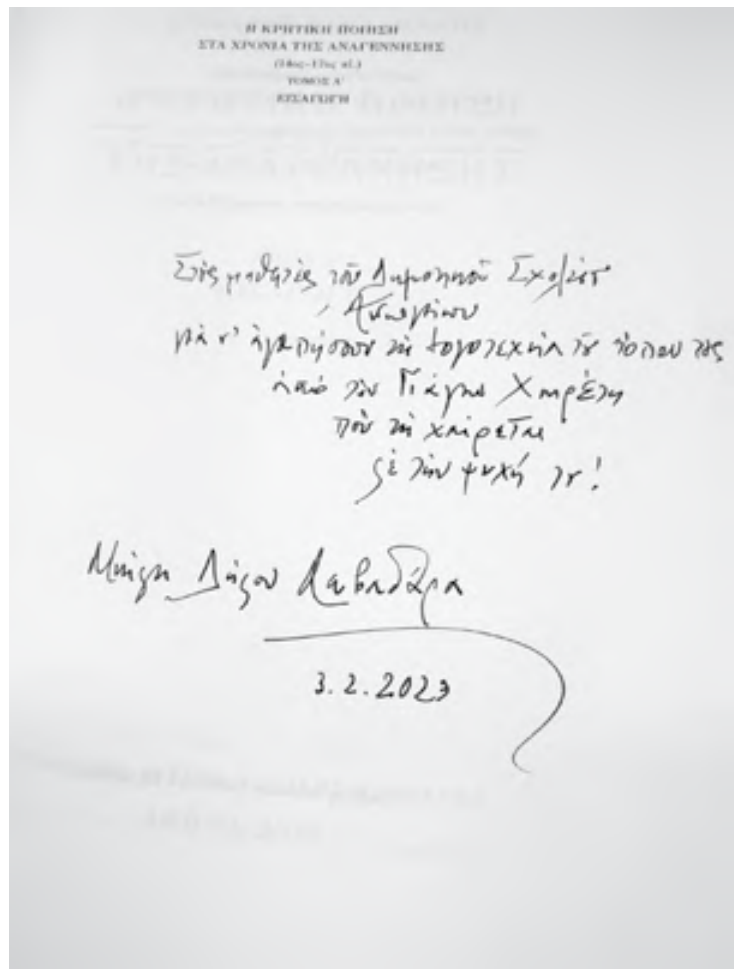 Η ΚΡΗΤΙΚΗ ΠΟΙΗΣΗ
ΣΤΑ ΧΡΟΝΙΑ ΤΗΣ ΑΝΑΓΕΝΝΗΣΗΣ
(14ος–17ος αἰ.)
ΤΟΜΟΣ Α΄
ΕΙΣΑΓΩΓΗ
Στὸς μαθητὲς τοῦ Δημοτικοῦ Σχολείου
Ἀνωγείων
γιὰ ν' ἀγαπήσουν τὴ λογοτεχνία τοῦ τόπου τους
ἀπὸ τὸν Γιάγκο Χαιρέτη
ποὺ τὴ χαίρεται
μὲ τὴν ψυχή του!
3.2.2023